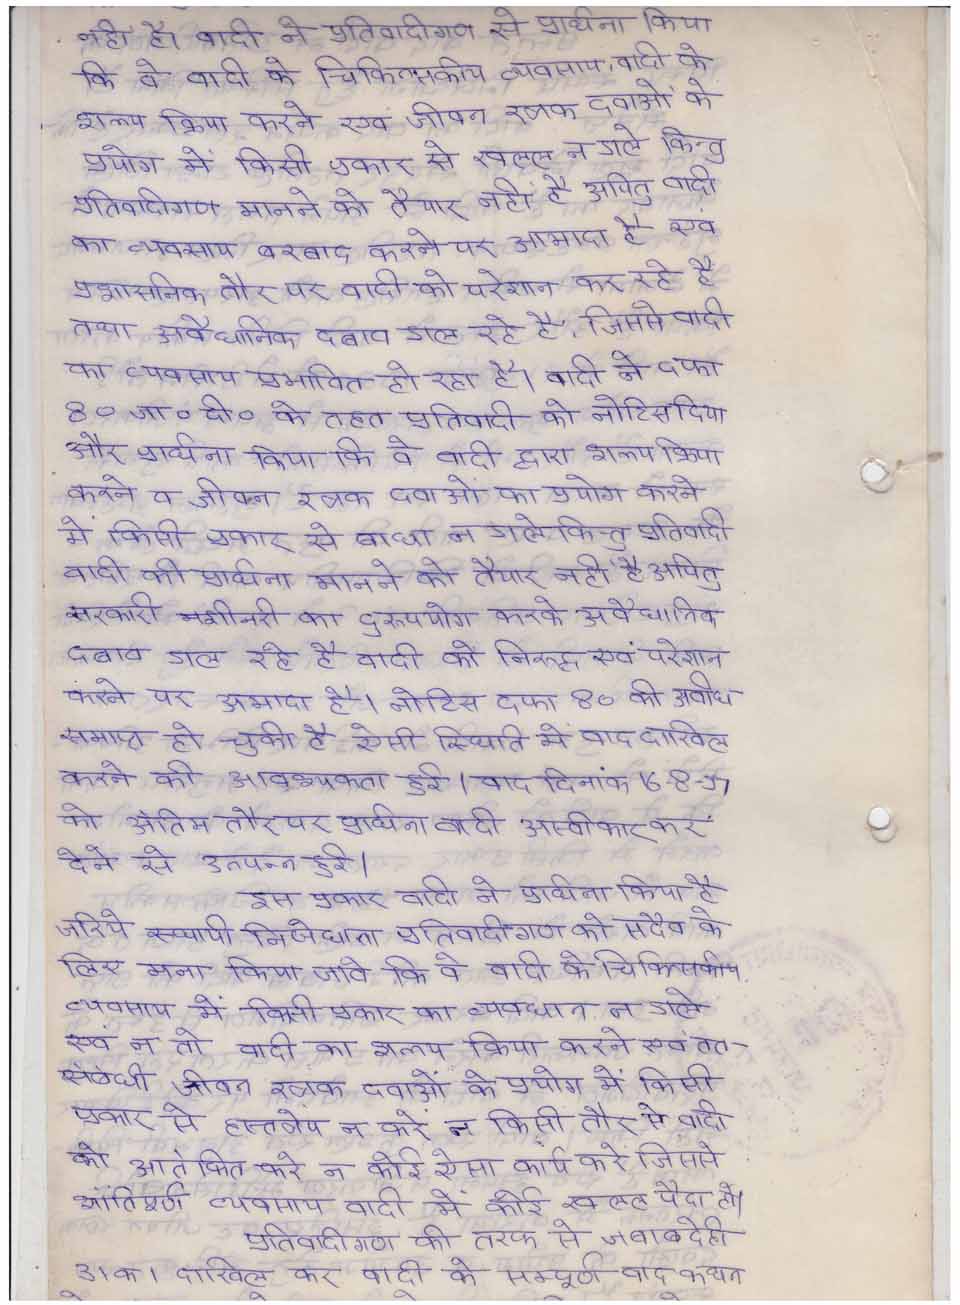 नहीं है। वादी ने प्रतिवादीगण से प्रार्थना किया
कि वे वादी के चिकित्सकीय व्यवसाय, वादी के
शल्य क्रिया करने एवं जीवन रक्षक दवाओं के
प्रयोग में किसी प्रकार से खलल न डाले किन्तु
प्रतिवादीगण मानने को तैयार नहीं है अपितु वादी
का व्यवसाय बरबाद करने पर आमादा है एवं
प्रशासनिक तौर पर वादी को परेशान कर रहे है
तथा अवैधानिक दबाव डाल रहे है, जिससे वादी
का व्यवसाय प्रभावित हो रहा है। वादी ने दफा
80 जा० दी० के तहत प्रतिवादी को नोटिस दिया
और प्रार्थना किया कि वे वादी द्वारा शल्य क्रिया
करने व जीवन रक्षक दवाओं का प्रयोग करने
में किसी प्रकार से बाधा न डाले किन्तु प्रतिवादी
वादी की प्रार्थना मानने को तैयार नहीं है अपितु
सरकारी मशीनरी का दुरुपयोग करके अवैधानिक
दबाव डाल रहे है वादी को निरुद्ध एवं परेशान
करने पर अमादा है। नोटिस दफा 80 की अवधि
समाप्त हो चुकी है ऐसी स्थिति में वाद दाखिल
करने की आवश्यकता हुई। वाद दिनांक 16-8-97
को अंतिम तौर पर प्रार्थना वादी अस्वीकार कर
देने से उत्पन्न हुई।
इस प्रकार वादी ने प्रार्थना किया है
जरिये स्थायी निषेधाज्ञा प्रतिवादीगण को सदैव के
लिए मना किया जावे कि वे वादी के चिकित्सकीय
व्यवसाय में किसी प्रकार का व्यवधान न डाले
एवं न तो वादी का शल्य क्रिया करने एवं तत-
संबंधी जीवन रक्षक दवाओं के प्रयोग में किसी
प्रकार से हस्तक्षेप न करें न किसी तौर से वादी
को आतंकित करे न कोई ऐसा कार्य करे जिससे
शांतिपूर्ण व्यवसाय वादी में कोई खलल पैदा हो।
प्रतिवादीगण की तरफ से जवाबदेही
31क1 दाखिल कर वादी के सम्पूर्ण वाद कथन